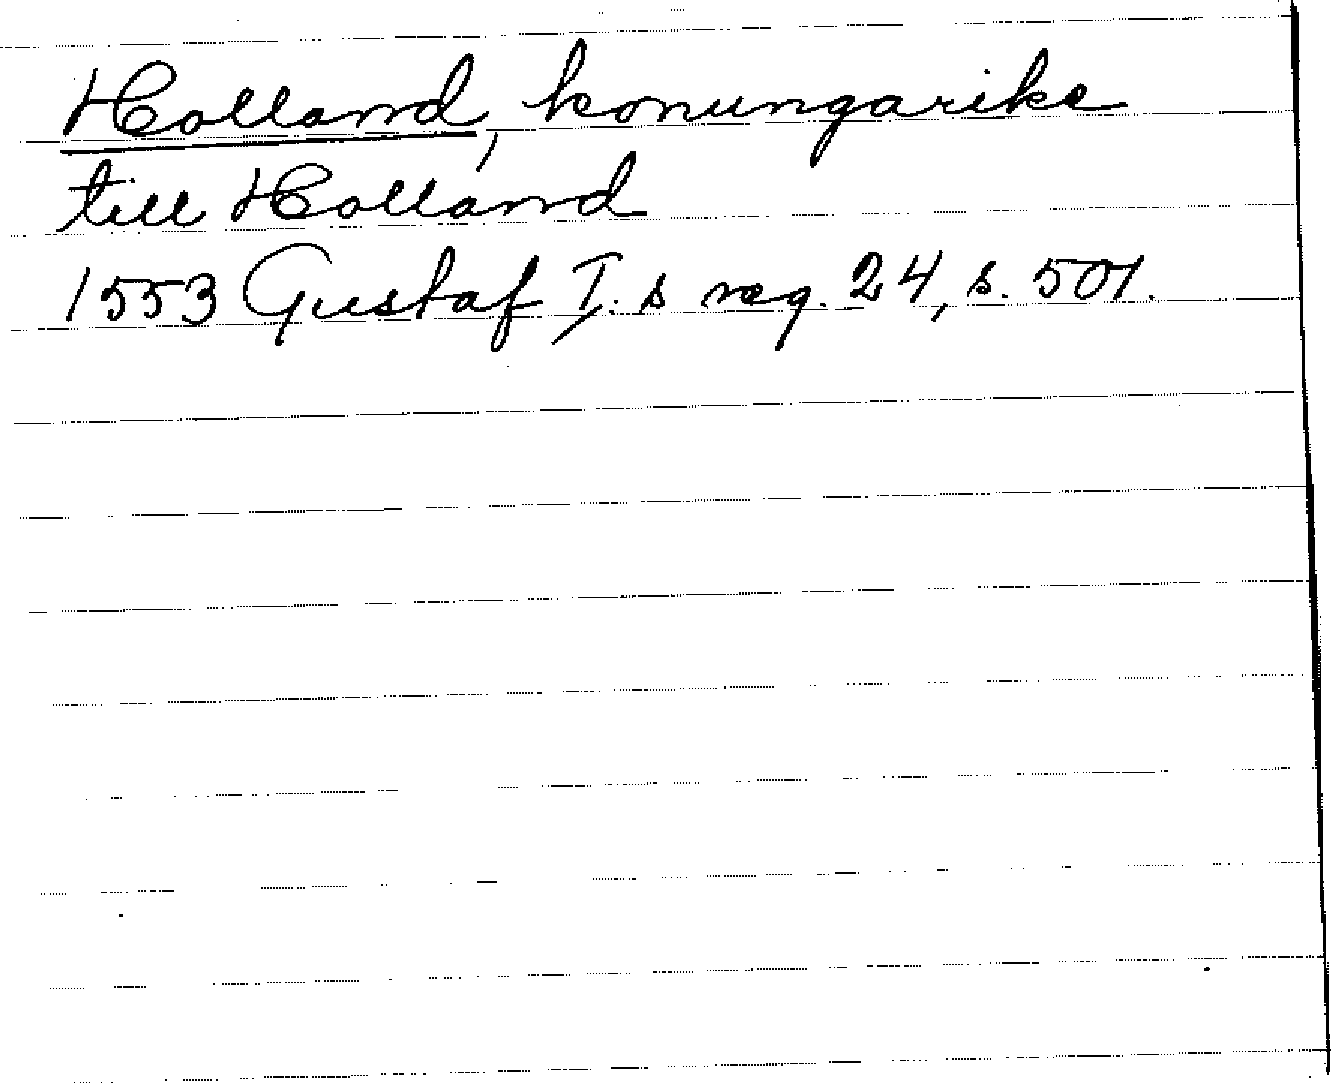 Holland, konungarike
till Holland
1553 Gustaf I. s reg. 24, s. 501.